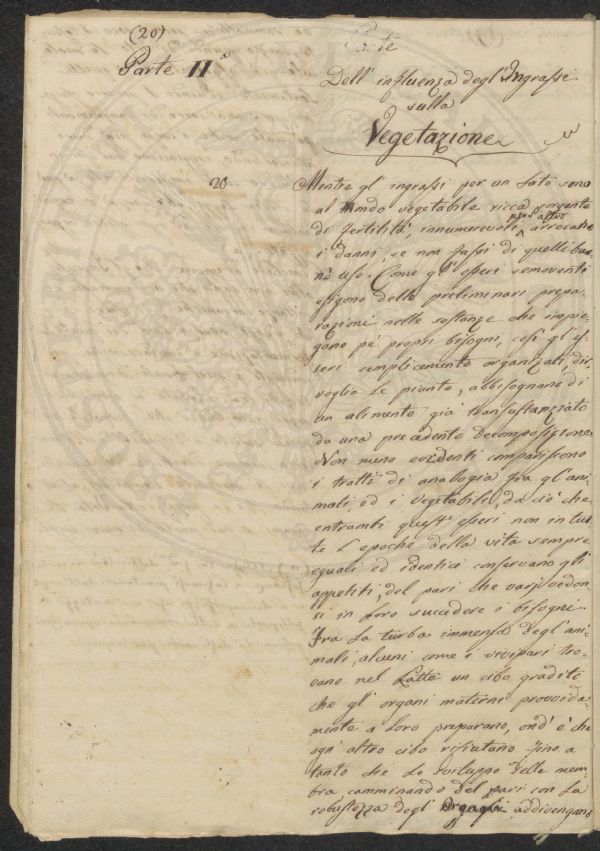 (20)
Parte II.a
Dell' influenza degl' Ingrassi
sulla
Vegetazione
20
Mentre gl' ingrassi per un lato sono
al Mondo vegetabile ricca sorgente
di fertilità, innumerevoli per l'altro arrecano
i danni, se non fassi di quelli buo-
n' uso. Come gl' esseri semoventi
esigono delle preliminari prepa-
razioni nelle sostanze che impie-
gano pe' propri bisogni, così gl' es-
seri semplicemente organizati, dir
voglio le piante, abbisognano di
un alimento già transustanziato
da una precedente decomposizione
Non meno evidenti compariscono
i tratti di analogia fra gl' ani-
mali, ed i vegetabili, da ciò che
entrambi questi esseri non in tut-
te l' epoche della vita sempre
eguali ed identici conservano gli
appetiti, del pari che varj vedon-
si in loro succedere i bisogni.
Fra la turba immensa degl' ani-
mali, alcuni come i vivipari tro-
vano nel Latte un cibo gradito
che gl' organi materni provvida-
mente a loro preparano, ond' è che
ogn' altro cibo rifiutano fino a
tanto che lo sviluppo delle mem-
bra camminando del pari con la
robustezza degl' addivengano